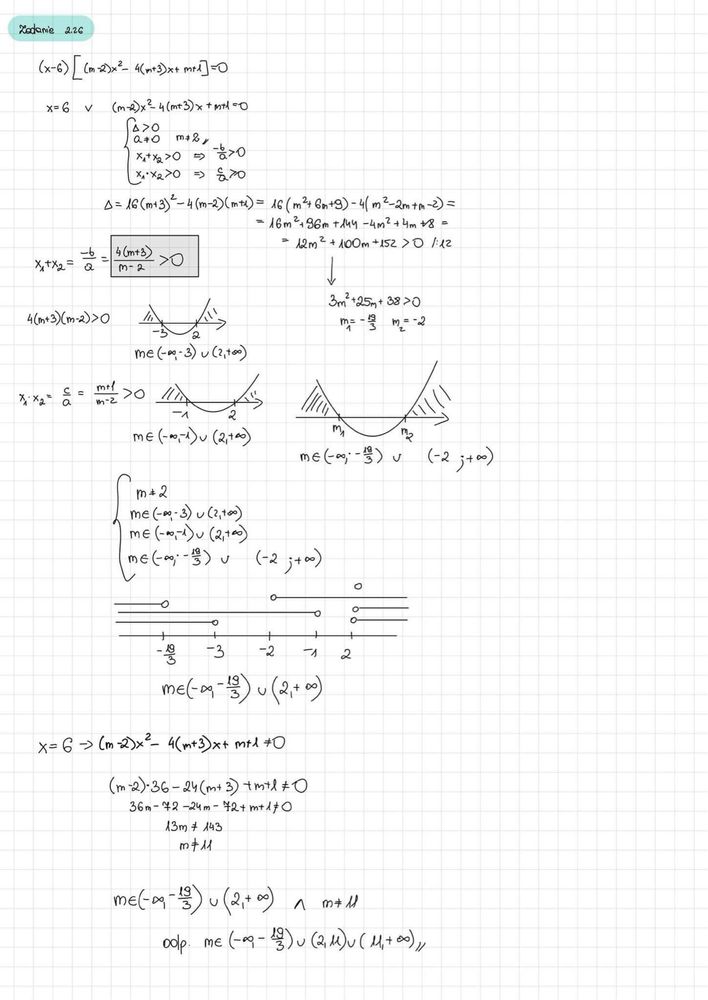 Zadanie 2.26
(x-6) [(m-2)x² - 4(m+3)x + m+1] = 0
x=6 ∨ (m-2)x² - 4(m+3)x + m+1 = 0
Δ>0
a≠0 m≠2,,
x₁+x₂>0 => -b/a >0
x₁·x₂>0 => c/a >0
Δ = 16(m+3)² - 4(m-2)(m+1) = 16(m²+6m+9) - 4(m²-2m+m-2) =
= 16m² + 96m + 144 - 4m² + 4m + 8 =
= 12m² + 100m + 152 > 0 /:12
x₁+x₂ = -b/a = 4(m+3)/m-2 >0
3m² + 25m + 38 > 0
m₁ = -19/3 m₂ = -2
4(m+3)(m-2)>0
-3 2
m∈(-∞,-3) ∪ (2,+∞)
x₁·x₂ = c/a = m+1/m-2 >0
-1 2
m₁ m₂
m∈(-∞,-1) ∪ (2,+∞)
m∈(-∞; -19/3) ∪ (-2 ;+∞)
m≠2
m∈(-∞,-3) ∪ (2,+∞)
m∈(-∞,-1) ∪ (2,+∞)
m∈(-∞; -19/3) ∪ (-2 ;+∞)
-19/3 -3 -2 -1 2
m∈(-∞, -19/3) ∪ (2,+∞)
x=6 → (m-2)x² - 4(m+3)x + m+1 ≠0
(m-2)·36 - 24(m+3) + m+1 ≠ 0
36m - 72 - 24m - 72 + m+1 ≠ 0
13m ≠ 143
m ≠ 11
m∈(-∞, -19/3) ∪ (2,+∞) ∧ m≠11
odp. m∈(-∞, -19/3) ∪ (2,11) ∪ (11,+∞),,